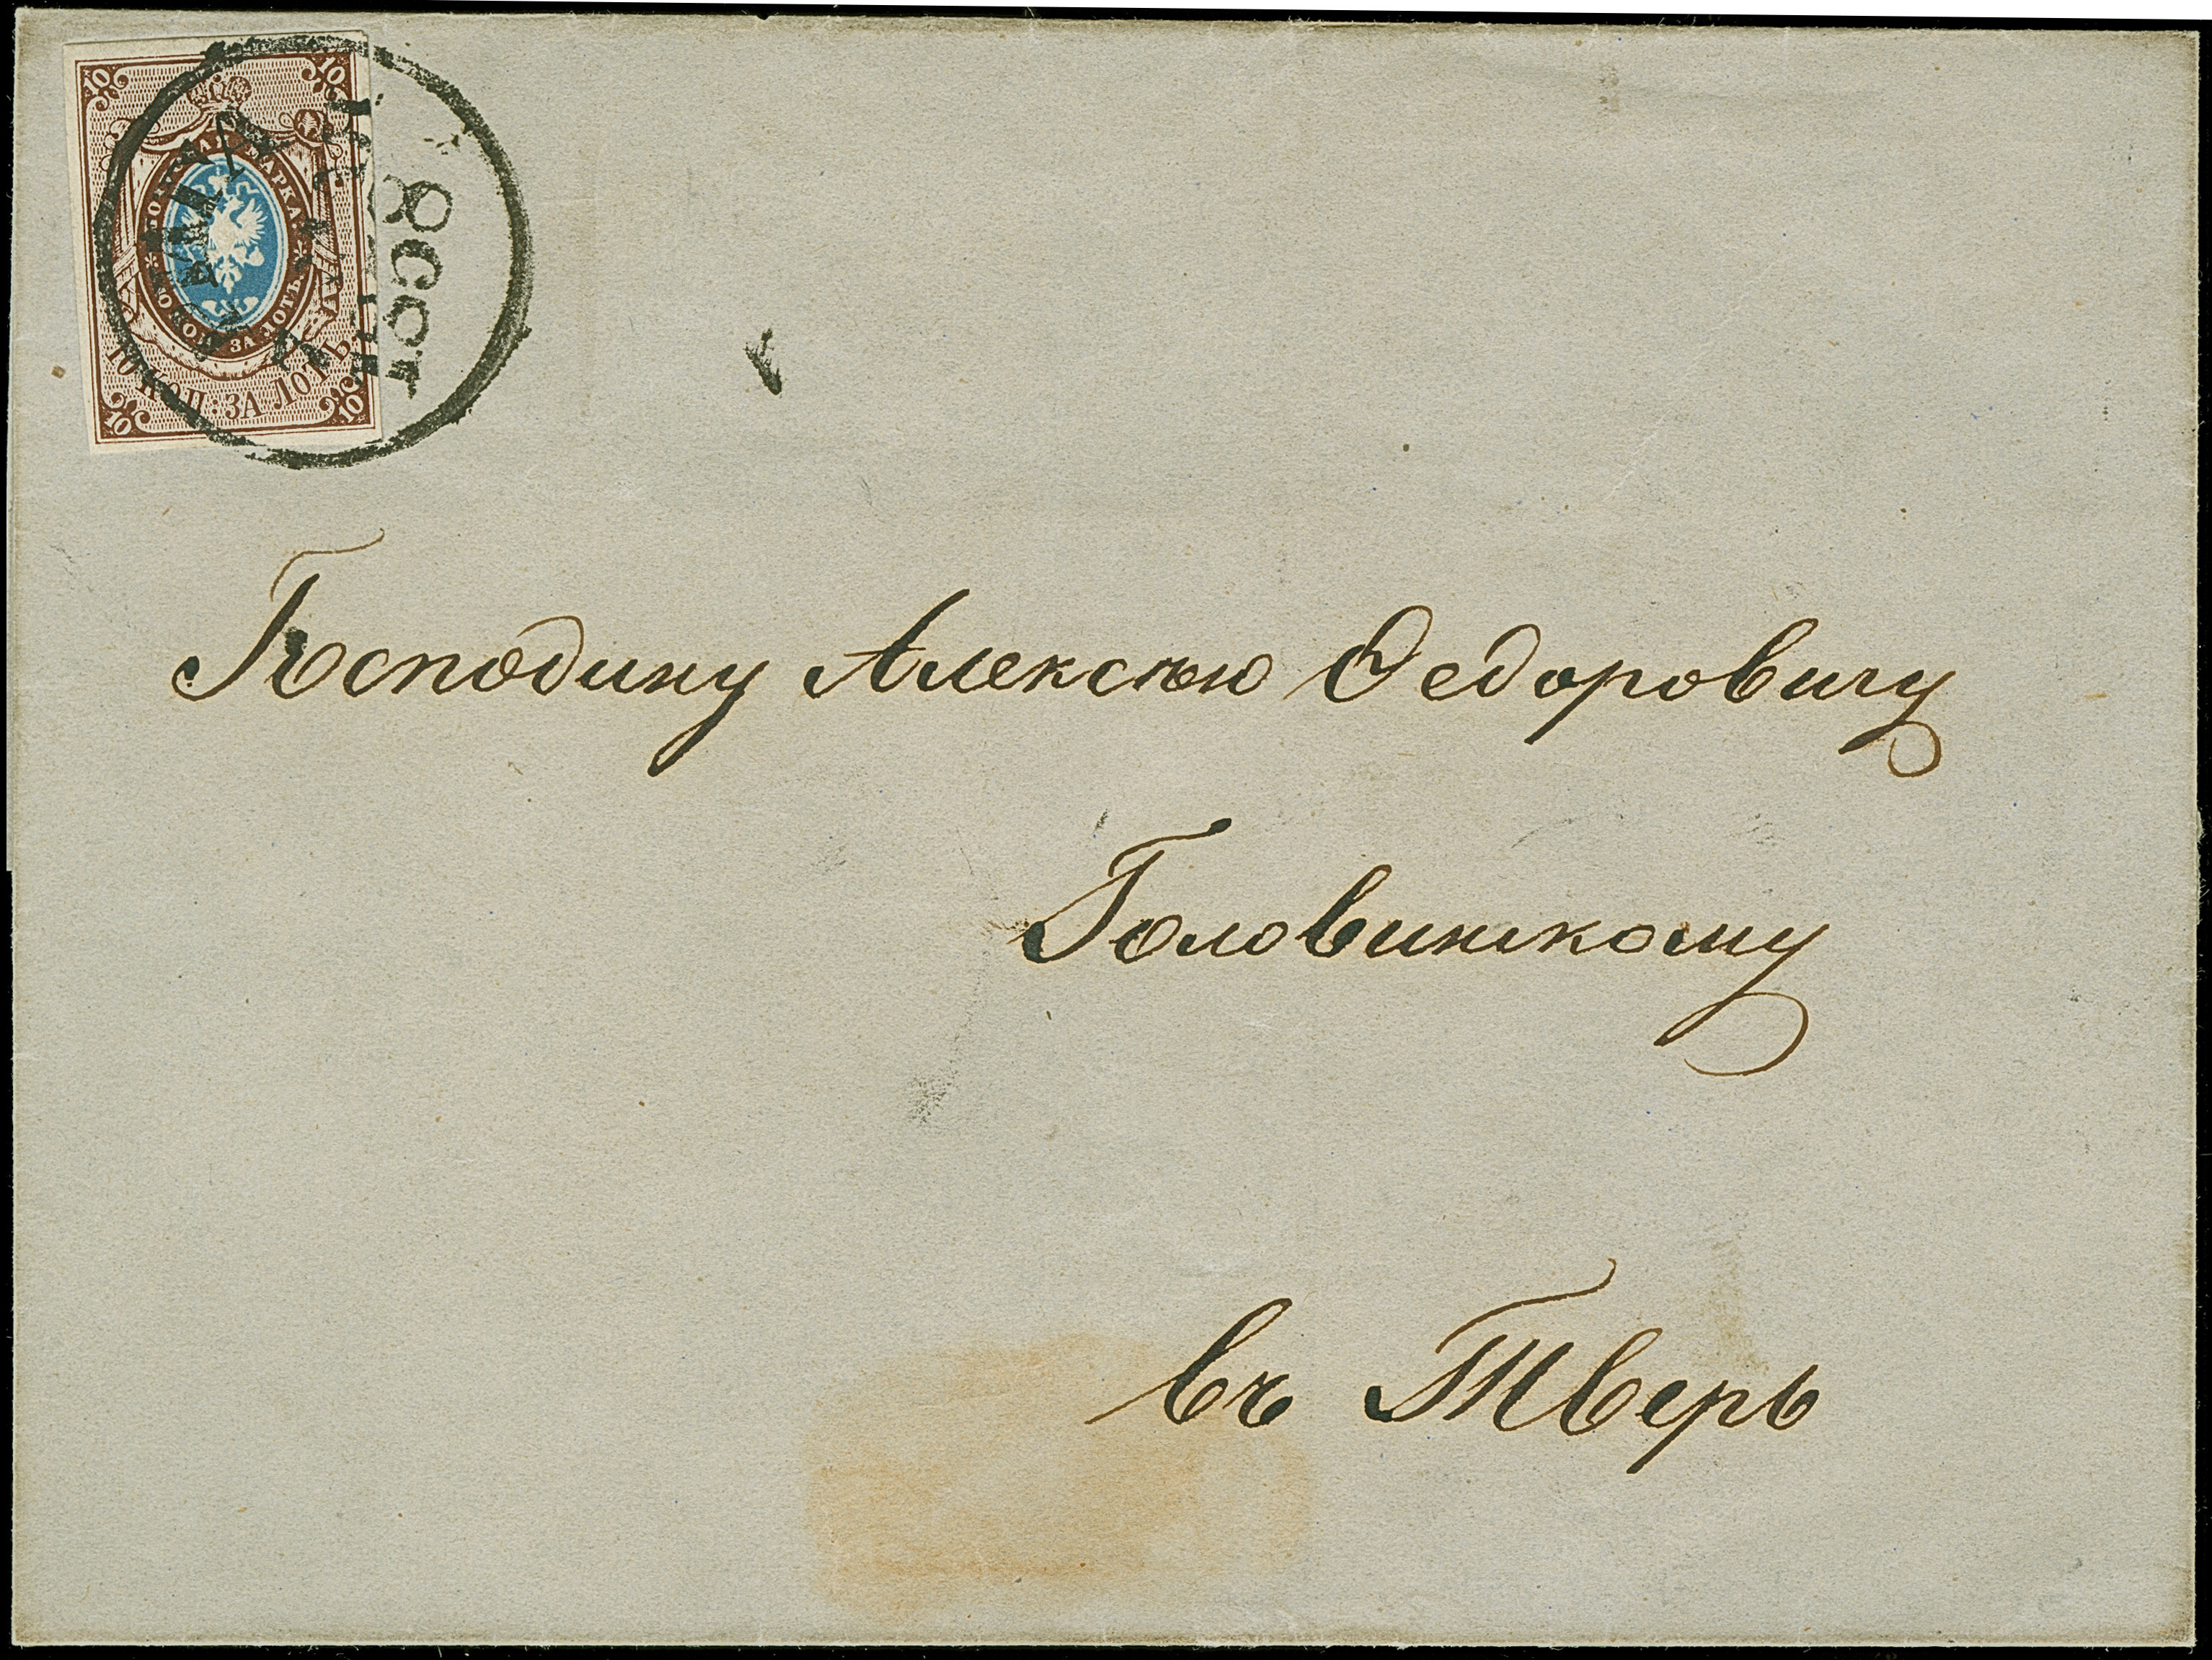 10 10
ПОЧТОВАЯ МАРКА * 10 КОП. ЗА ЛОТЪ *
10 КОП: ЗА ЛОТЪ.
10 10
Господину Алексѣю Ѳедоровичу
Головинскому
въ Тверь